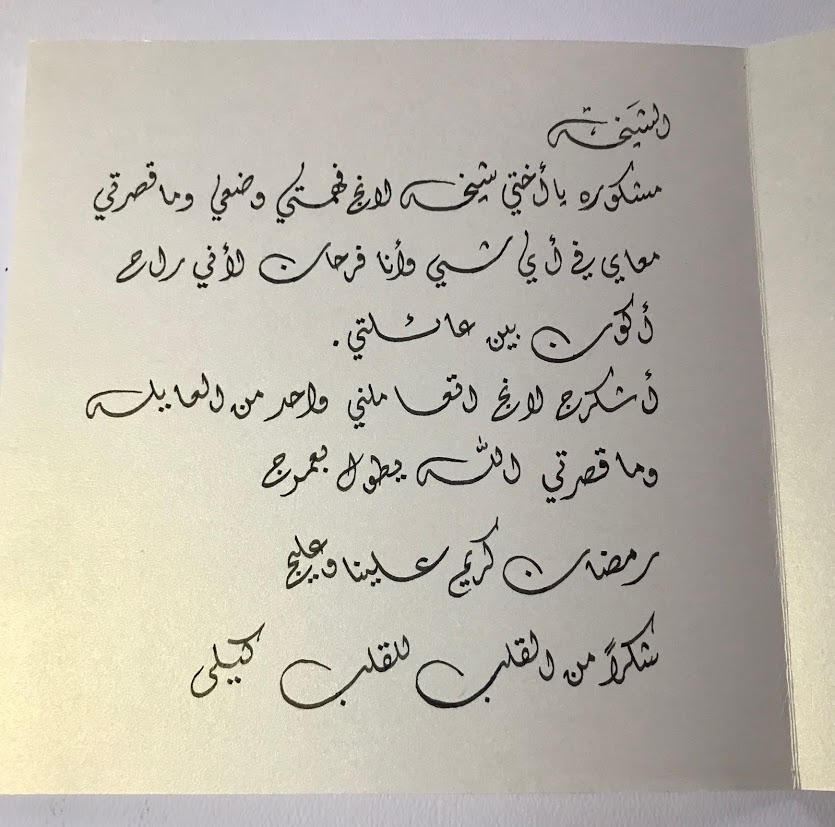 الشَيخة
مشكوره يا أختي شيخه لانج فهمتي وضعي وما قصرتي
معاي في أي شي وأنا فرحان لأني راح
أكون بين عائلتي.
أشكرج لانج اتعاملني واحد من العايله
وما قصرتي الله يطول بعمرج
رمضان كريم علينا وعليج
شكراً من القلب للقلب